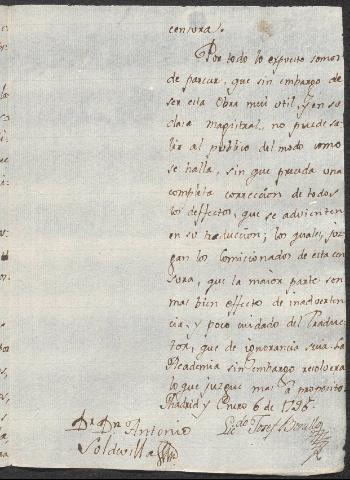 censura.
Por todo lo expuesto somos
de parecer, que sin embargo de
ser esta Obra mui util, y en su
clase magistral, no puede sa-
lir al publico del modo como
se halla, sin que preceda una
completa correccion de todos
los deffectos, que se advierten
en su traduccion; los quales, juz-
gan los Comicionados de esta cen-
sura, que la maior parte son
mas bien effecto de inadverten-
cia, y poco cuidado del Traduc-
tor, que de ignorancia suia. La
Academia sin embargo resolverá
lo que juzgue mas á proposito.
Madrid y Enero 6 de 1795
Dr. Dn. Antonio
Soldevilla
Josef